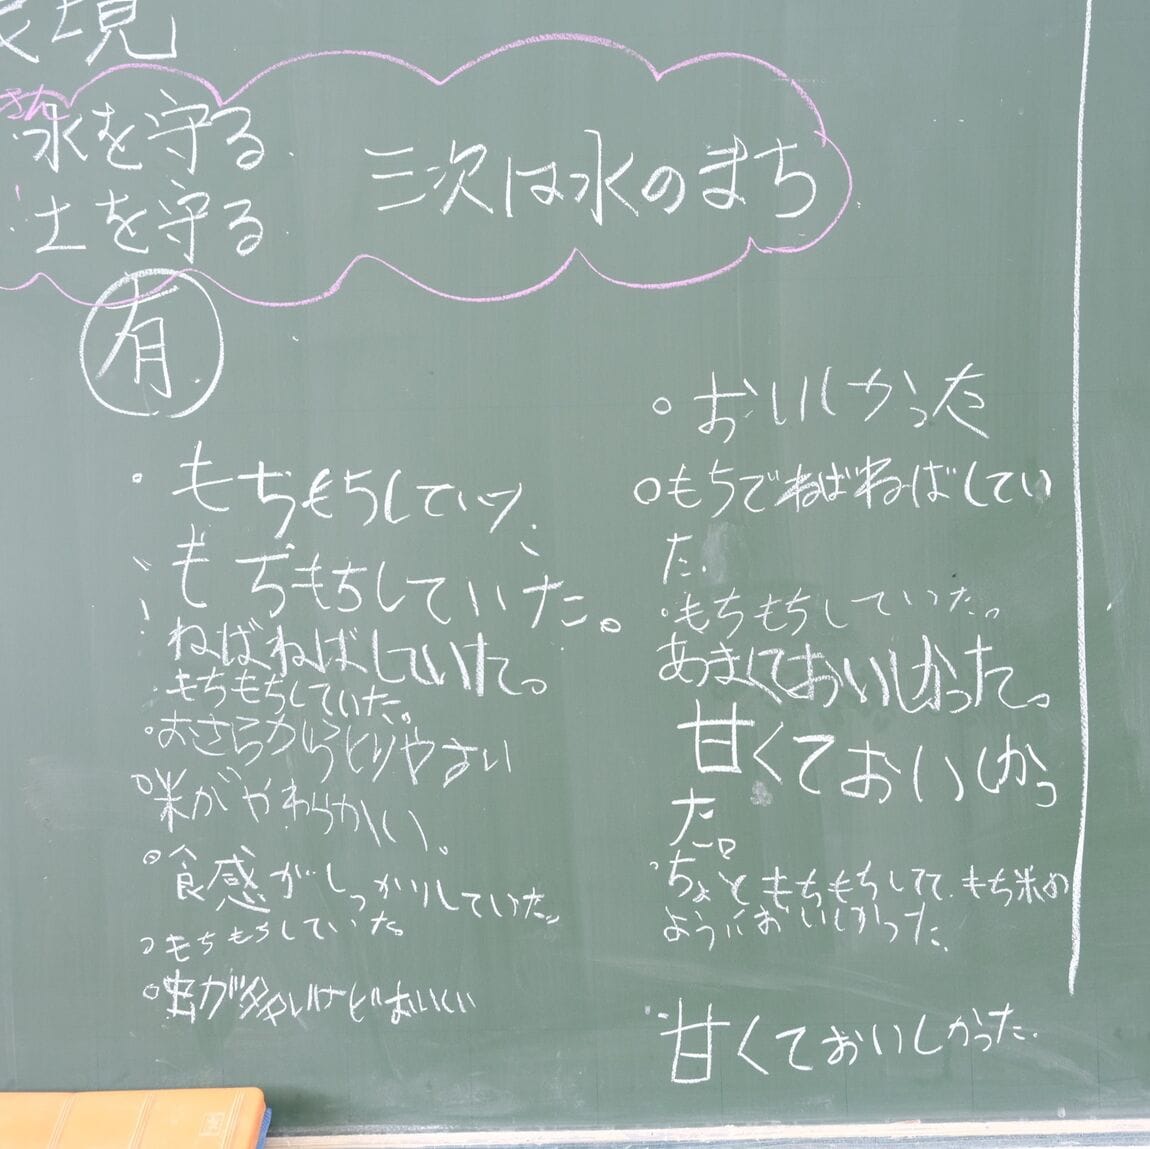 表現
水を守る
土を守る
三次は水のまち
有
・もちもちしていた
もちもちしていた。
ねばねばしていた。
・もちもちしていた。
・おさらからとりやすい
○米がやわらかい。
○食感がしっかりしていた。
・もちもちしていた。
○虫が多いけどおいしい
○おいしかった
○もちでねばねばしてい
た.
・もちもちしていた。
あまくておいしかった。
甘くておいしかっ
た。
・ちょっともちもちしてて、もち米の
ようにおいしかった.
甘くておいしかった.